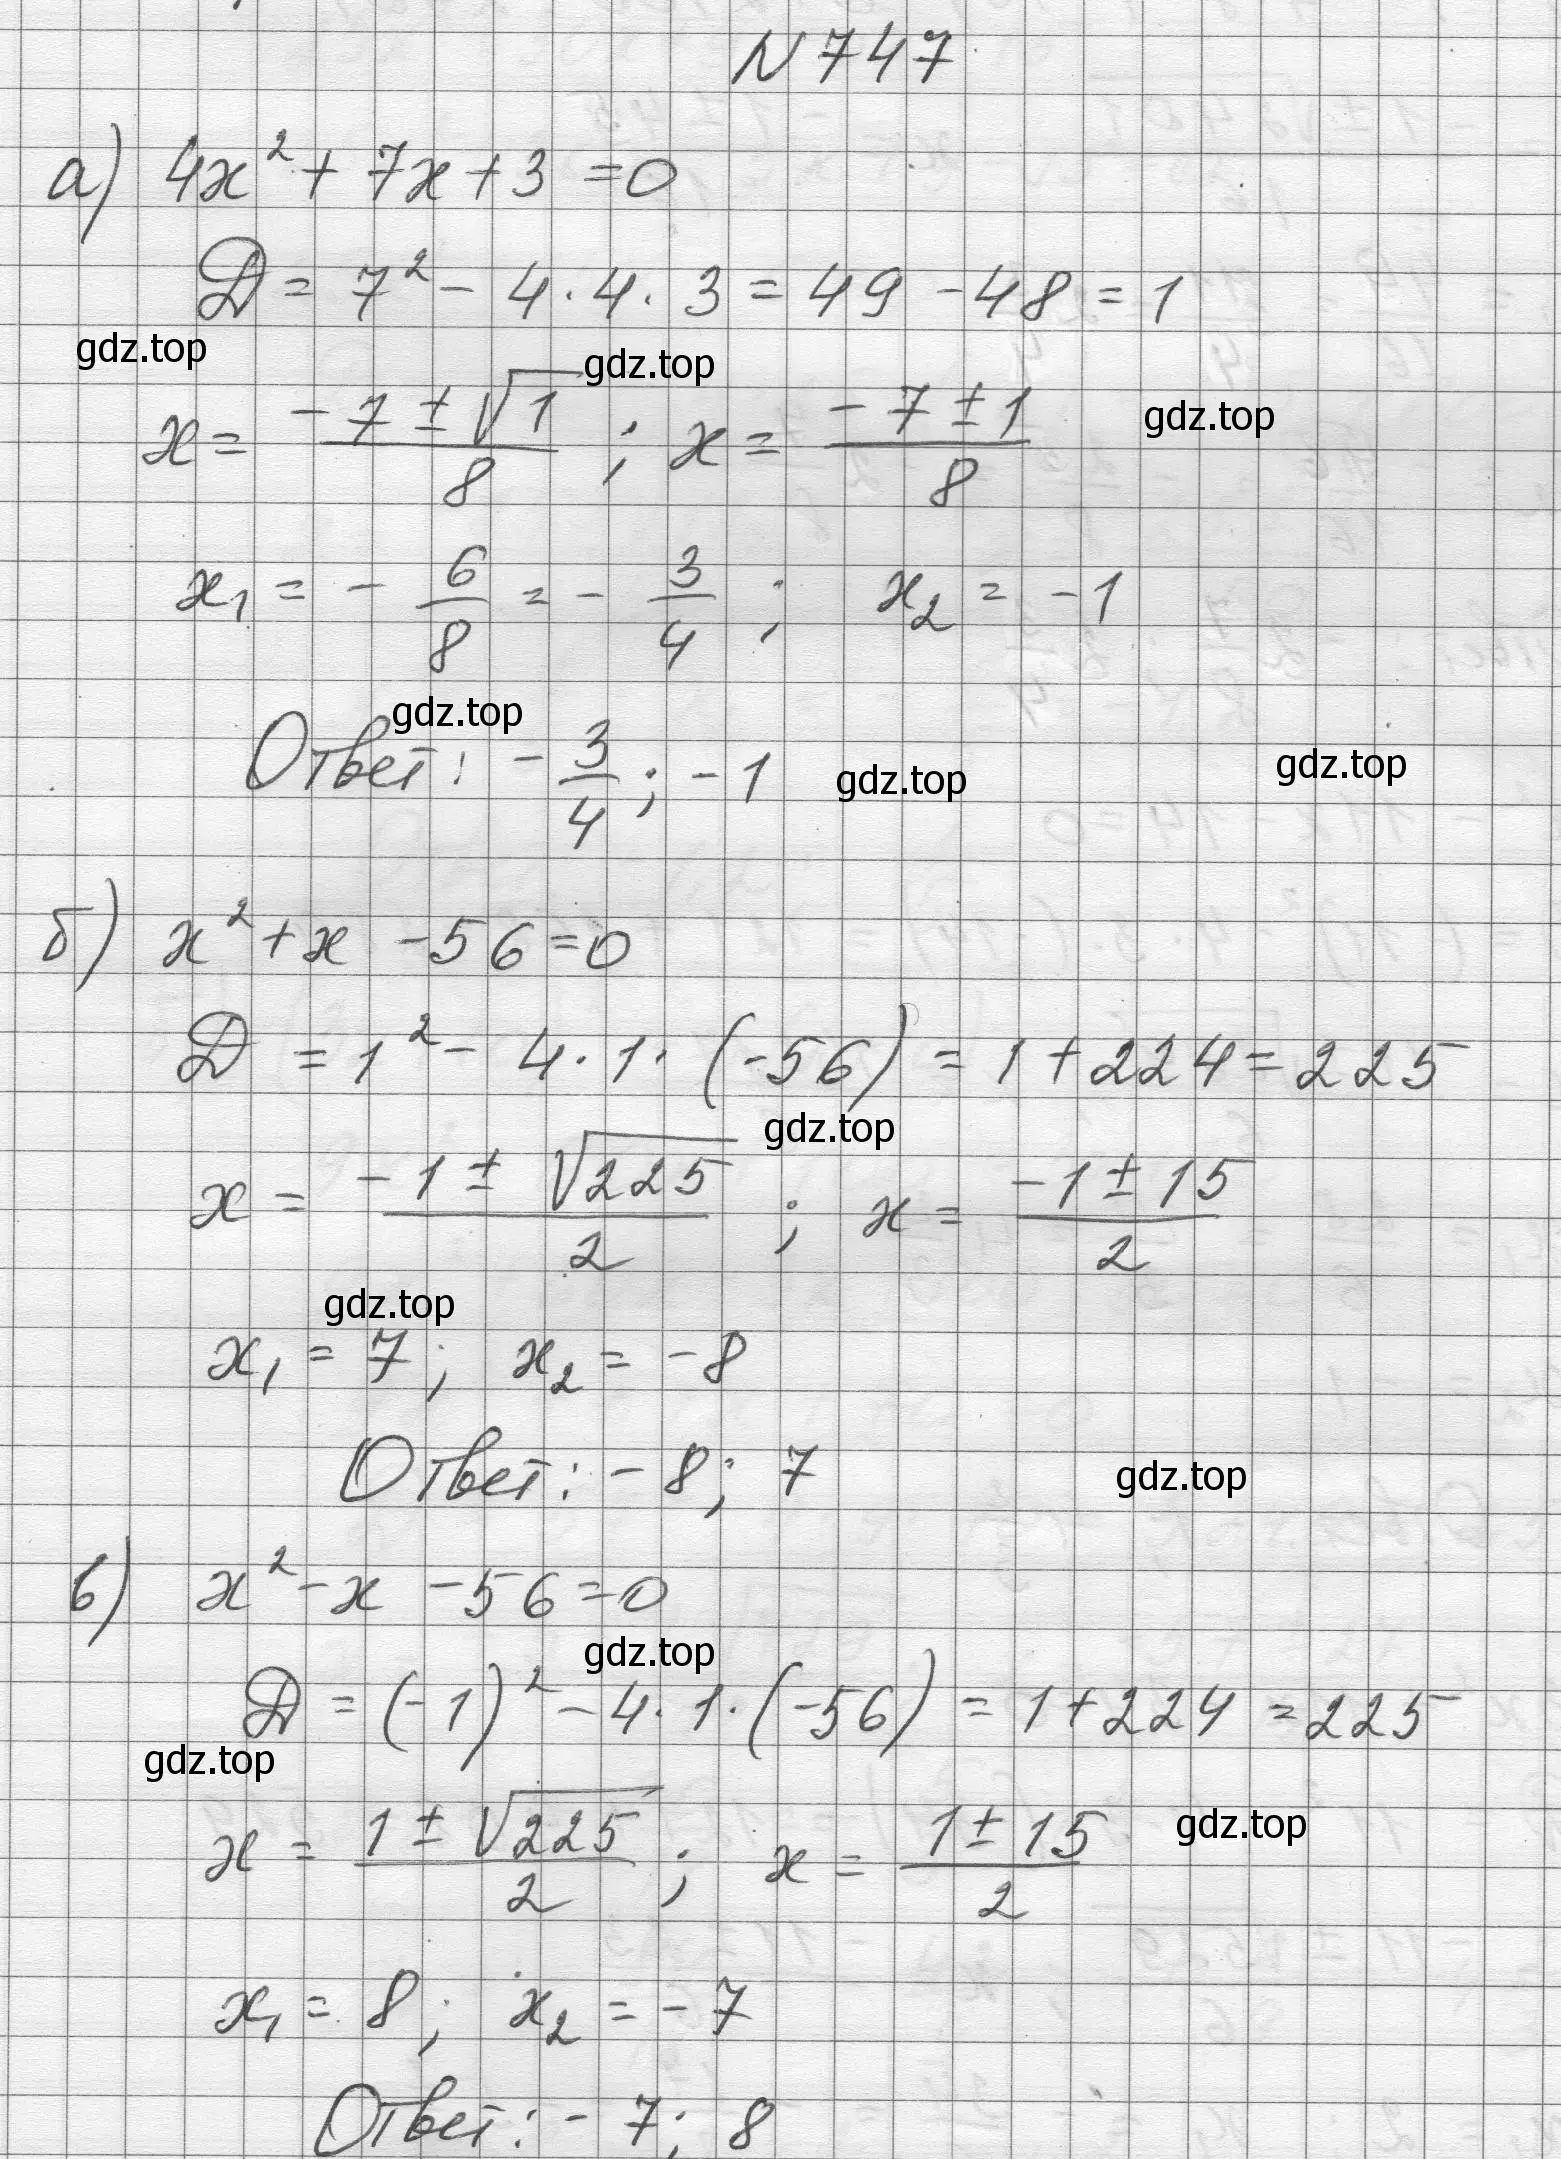 N 747
а) 4x² + 7x + 3 = 0
D = 7² - 4 · 4 · 3 = 49 - 48 = 1
gdz.top
gdz.top
x = (-7 ± √1)/8 ; x = (-7 ± 1)/8
gdz.top
x₁ = - 6/8 = - 3/4 ; x₂ = -1
gdz.top
Ответ: - 3/4 ; -1
gdz.top
gdz.top
б) x² + x - 56 = 0
D = 1² - 4 · 1 · (-56) = 1 + 224 = 225
gdz.top
x = (-1 ± √225)/2 ; x = (-1 ± 15)/2
gdz.top
x₁ = 7; x₂ = -8
Ответ: -8; 7
gdz.top
в) x² - x - 56 = 0
gdz.top
D = (-1)² - 4 · 1 · (-56) = 1 + 224 = 225
gdz.top
x = (1 ± √225)/2 ; x = (1 ± 15)/2
gdz.top
x₁ = 8; x₂ = -7
Ответ: -7; 8